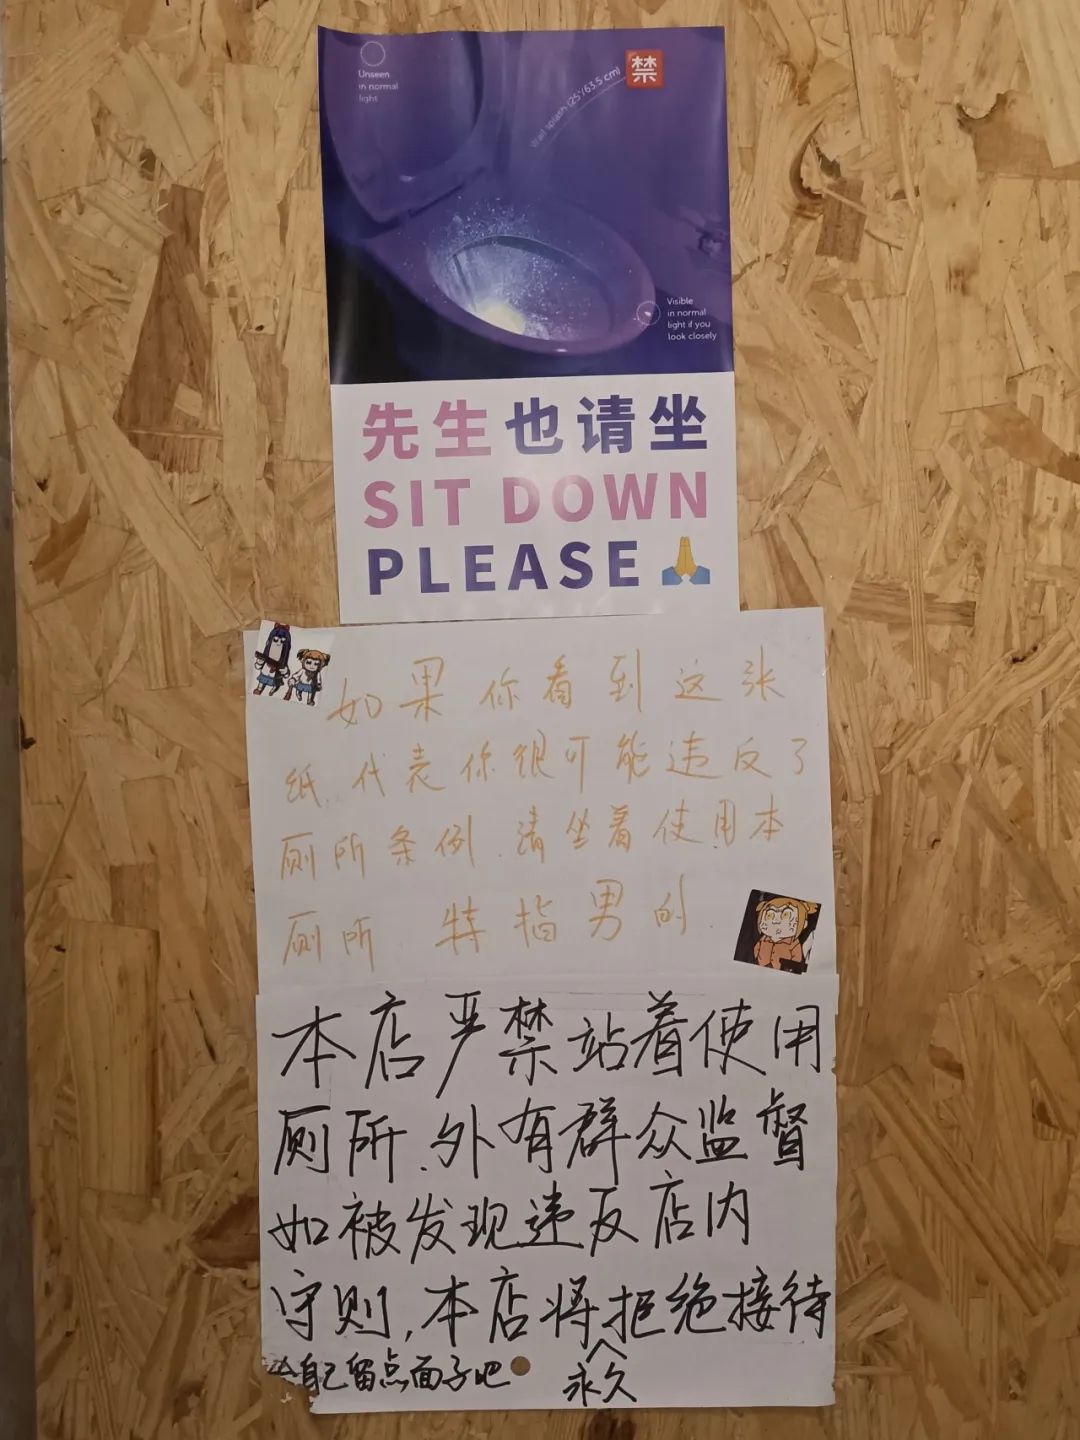 Unseen
in normal
light
Wall splash (25"/63.5 cm)
禁
Visible
in normal
light if you
look closely
先生也请坐
SIT DOWN
PLEASE 🙏
如果你看到这张
纸.代表你很可能违反了
厕所条例.请坐着使用本
厕所 特指男的.
本店严禁站着使用
厕所.外有群众监督
如被发现违反店内
守则,本店将拒绝接待
^
永久
给自己留点面子吧